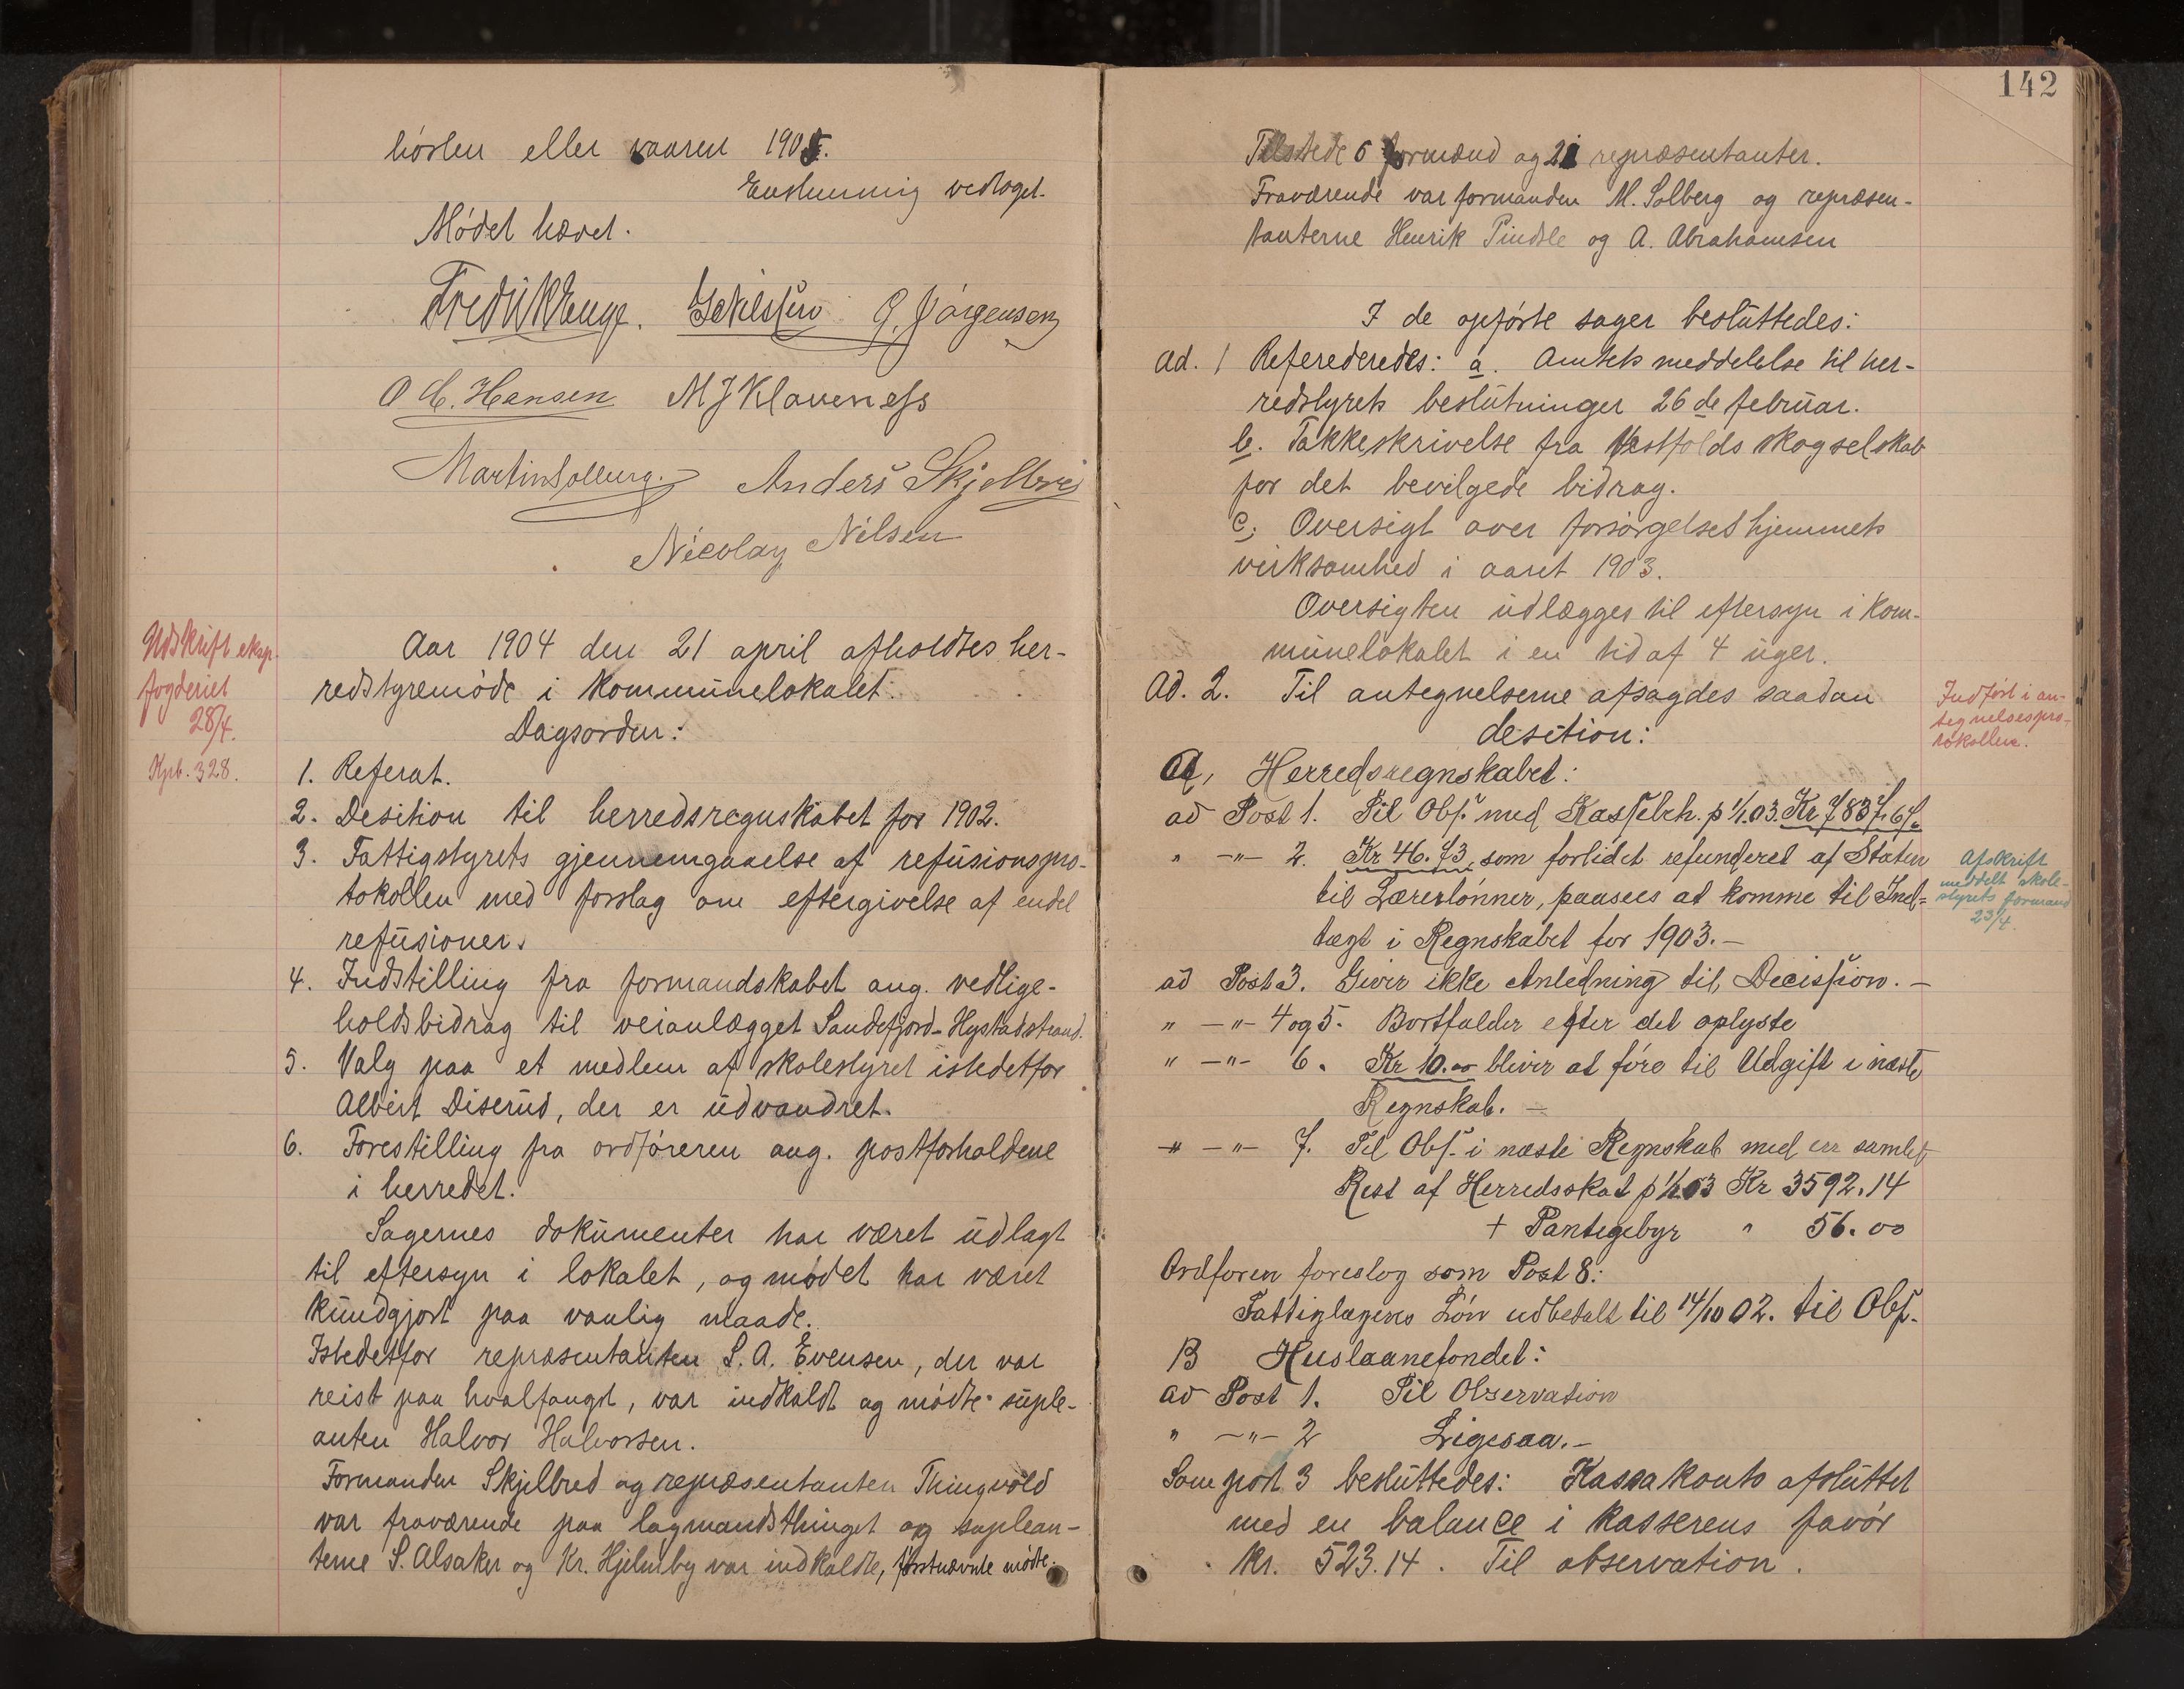 høsten eller vaaren 1905.
Enstemmig vedtaget.
Mødet hævet.
G. Jørgensen
O Chr. Hansen M J Klaveness
Martin Solberg. Anders Skjelbred
Nicolay Nilsen
Udskrift eksp.
fogderiet
28/4.
Kpb. 328.
Aar 1904 den 21 april afholdtes her-
redstyremøde i kommunelokalet.
Dagsorden:
1. Referat.
2. Desition til herredsregnskabet for 1902.
3. Fattigstyrets gjennemgaaelse af refusionspro-
tokollen med forslag om eftergivelse af endel
refusioner.
4. Indstilling fra formandskabet ang. vedlige-
holdsbidrag til veianlægget Sandefjord-Hystadstrand.
5. Valg paa et medlem af skolestyret istedetfor
Albert Diserud, der er udvandret.
6. Forestilling fra ordføreren ang. postforholdene
i herredet.
Sagernes dokumenter har været udlagt
til eftersyn i lokalet, og mødet har været
kundgjort paa vanlig maade.
Istedetfor repræsentanten S. A. Evensen, der var
reist paa hvalfangst, var indkaldt og mødte suple-
anten Halvor Halvorsen.
Formanden Skjelbred og repræsentanten Thingvold
var fraværende paa lagmandsthinget og suplean-
terne S. Alsaker og Kr. Hjelmby var indkaldte, førstnævnte mødte.
142
Tilstede 6 formænd og 21 repræsentanter.
Fraværende var formanden M. Solberg og repræsen-
tanterne Henrik Pindsle og A. Abrahamsen
I de opførte sager besluttedes:
ad. 1 Refereredes: a. Amtets meddelelse til her-
redstyrets beslutninger 26de februar.
b. Takkeskrivelse fra Vestfolds skogselskab
for det bevilgede bidrag.
c. Oversigt over forsørgelseshjemmets
virksomhed i aaret 1903.
Oversigten udlægges til eftersyn i kom-
munelokalet i en tid af 4 uger.
Ad. 2. Til antegnelserne afsagdes saadan
desition:
Indført i an-
tegnelsespro-
tokollen.
A, Herredsregnskabet:
ad Post 1. Til Obs. med Kassebeh. p 1/1.03. Kr 7837.67.
" -"- 2. Kr 46.73, som forlidet refunderet af Staten
til Lærerlønner, paasees at komme til Ind-
tægt i Regnskabet for 1903.-
Afskrift
meddelt skole-
styrets formand
23/4.
ad Post 3. Giver ikke Anledning til Decission.-
" -"- 4 og 5. Bortfalder efter det oplyste
" -"- 6. Kr 10.00 bliver at føre til Udgift i næste
Regnskab.-
" -"- 7. Til Obs. i næste Regnskab med en samlet
Rest af Herredsskat p 1/1.03 Kr 3592.14
+ Pantegebyr " 56.00
Ordføren foreslog som Post 8:
Fattiglægens Løn udbetalt til 14/10 02. til Obs.
B Huslaanefondet:
ad Post 1. Til Observation
" -"- 2 Ligesaa.-
Som post 3 besluttedes: Kassakonto afsluttet
med en balance i kasserens favør
kr. 523.14. Til observation.